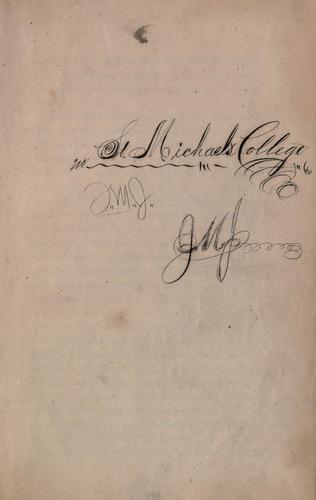 St Michaels College
J.M.J.
JMJ